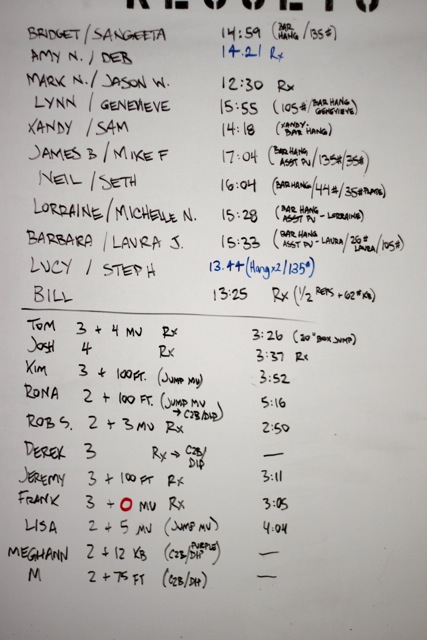 RESULTS
BRIDGET / SANGEETA 14:59 (BAR HANG / 135#)
AMY N. / DEB 14.21 Rx
MARK N. / JASON W. 12:30 Rx
LYNN / GENEVIEVE 15:55 (105# / BAR HANG GENEVIEVE)
XANDY / SAM 14:18 (XANDY- BAR HANG)
JAMES B / MIKE F 17:04 (BAR HANG ASST PU / 135# / 35#)
NEIL / SETH 16:04 (BAR HANG / 44# / 35# PLATE)
LORRAINE / MICHELLE N. 15:28 (BAR HANG ASST PU - LORRAINE)
BARBARA / LAURA J. 15:33 (BAR HANG ASST PU - LAURA / 26# LAURA / 105#)
LUCY / STEPH 13.44 (Hang x2 / 135#)
BILL 13:25 Rx (1/2 REPS + 62# KB)
TOM 3 + 4 MU Rx 3:26 (20" BOX JUMP)
JOSH 4 Rx 3:37 Rx
KIM 3 + 100 FT. (JUMP MU) 3:52
RONA 2 + 100 FT. (JUMP MU → C2B/DIP) 5:16
ROB S. 2 + 3 MU Rx 2:50
DEREK 3 Rx → C2B/DIP —
JEREMY 3 + 100 FT Rx 3:11
FRANK 3 + 0 MU Rx 3:05
LISA 2 + 5 MU (JUMP MU) 4:04
MEGHANN 2 + 12 KB (C2B/DIP PURPLE) —
M 2 + 75 FT (C2B/DIP) —